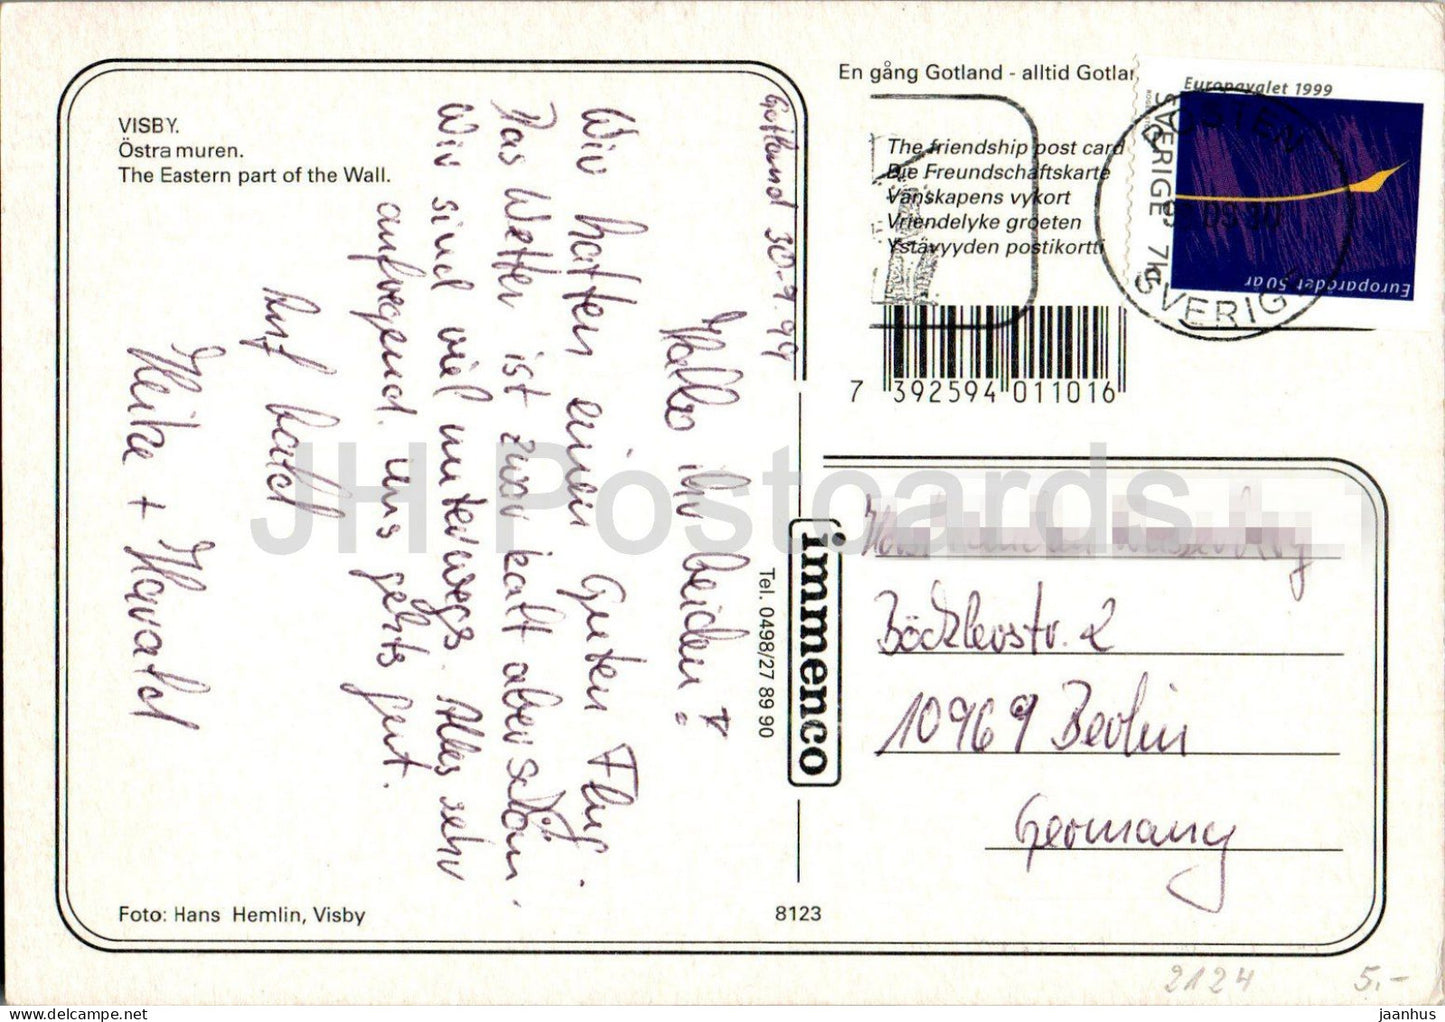 VISBY.
Östra muren.
The Eastern part of the Wall.
Gotland 30.9.99
Hallo ihr beiden!
Wir hatten einen guten Flug.
Das Wetter ist zwar kalt aber schön.
Wir sind viel unterwegs. Alles sehr
aufregend. Uns gehts gut.
Bis bald
Heike + Harald
Foto: Hans Hemlin, Visby
8123
immenco
Tel. 0498/27 89 90
En gång Gotland - alltid Gotlan
The friendship post card
Die Freundschaftskarte
Vänskapens vykort
Vriendelyke groeten
Ystävyyden postikortti
7 392594 011016
Europavalet 1999
SVERIGE 7kr
Europarådet 50 år
POSTEN
SVERIGE
Böcklerstr. 2
10969 Berlin
Germany
2124
5.-
JH Postcards
jaanhus
delcampe.net